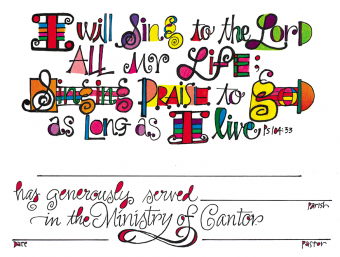 I will Sing to the Lord
All my Life;
Singing Praise to God
as Long as I live. Ps 104:33
has generously served
Parish
in the Ministry of Cantor.
Date Pastor